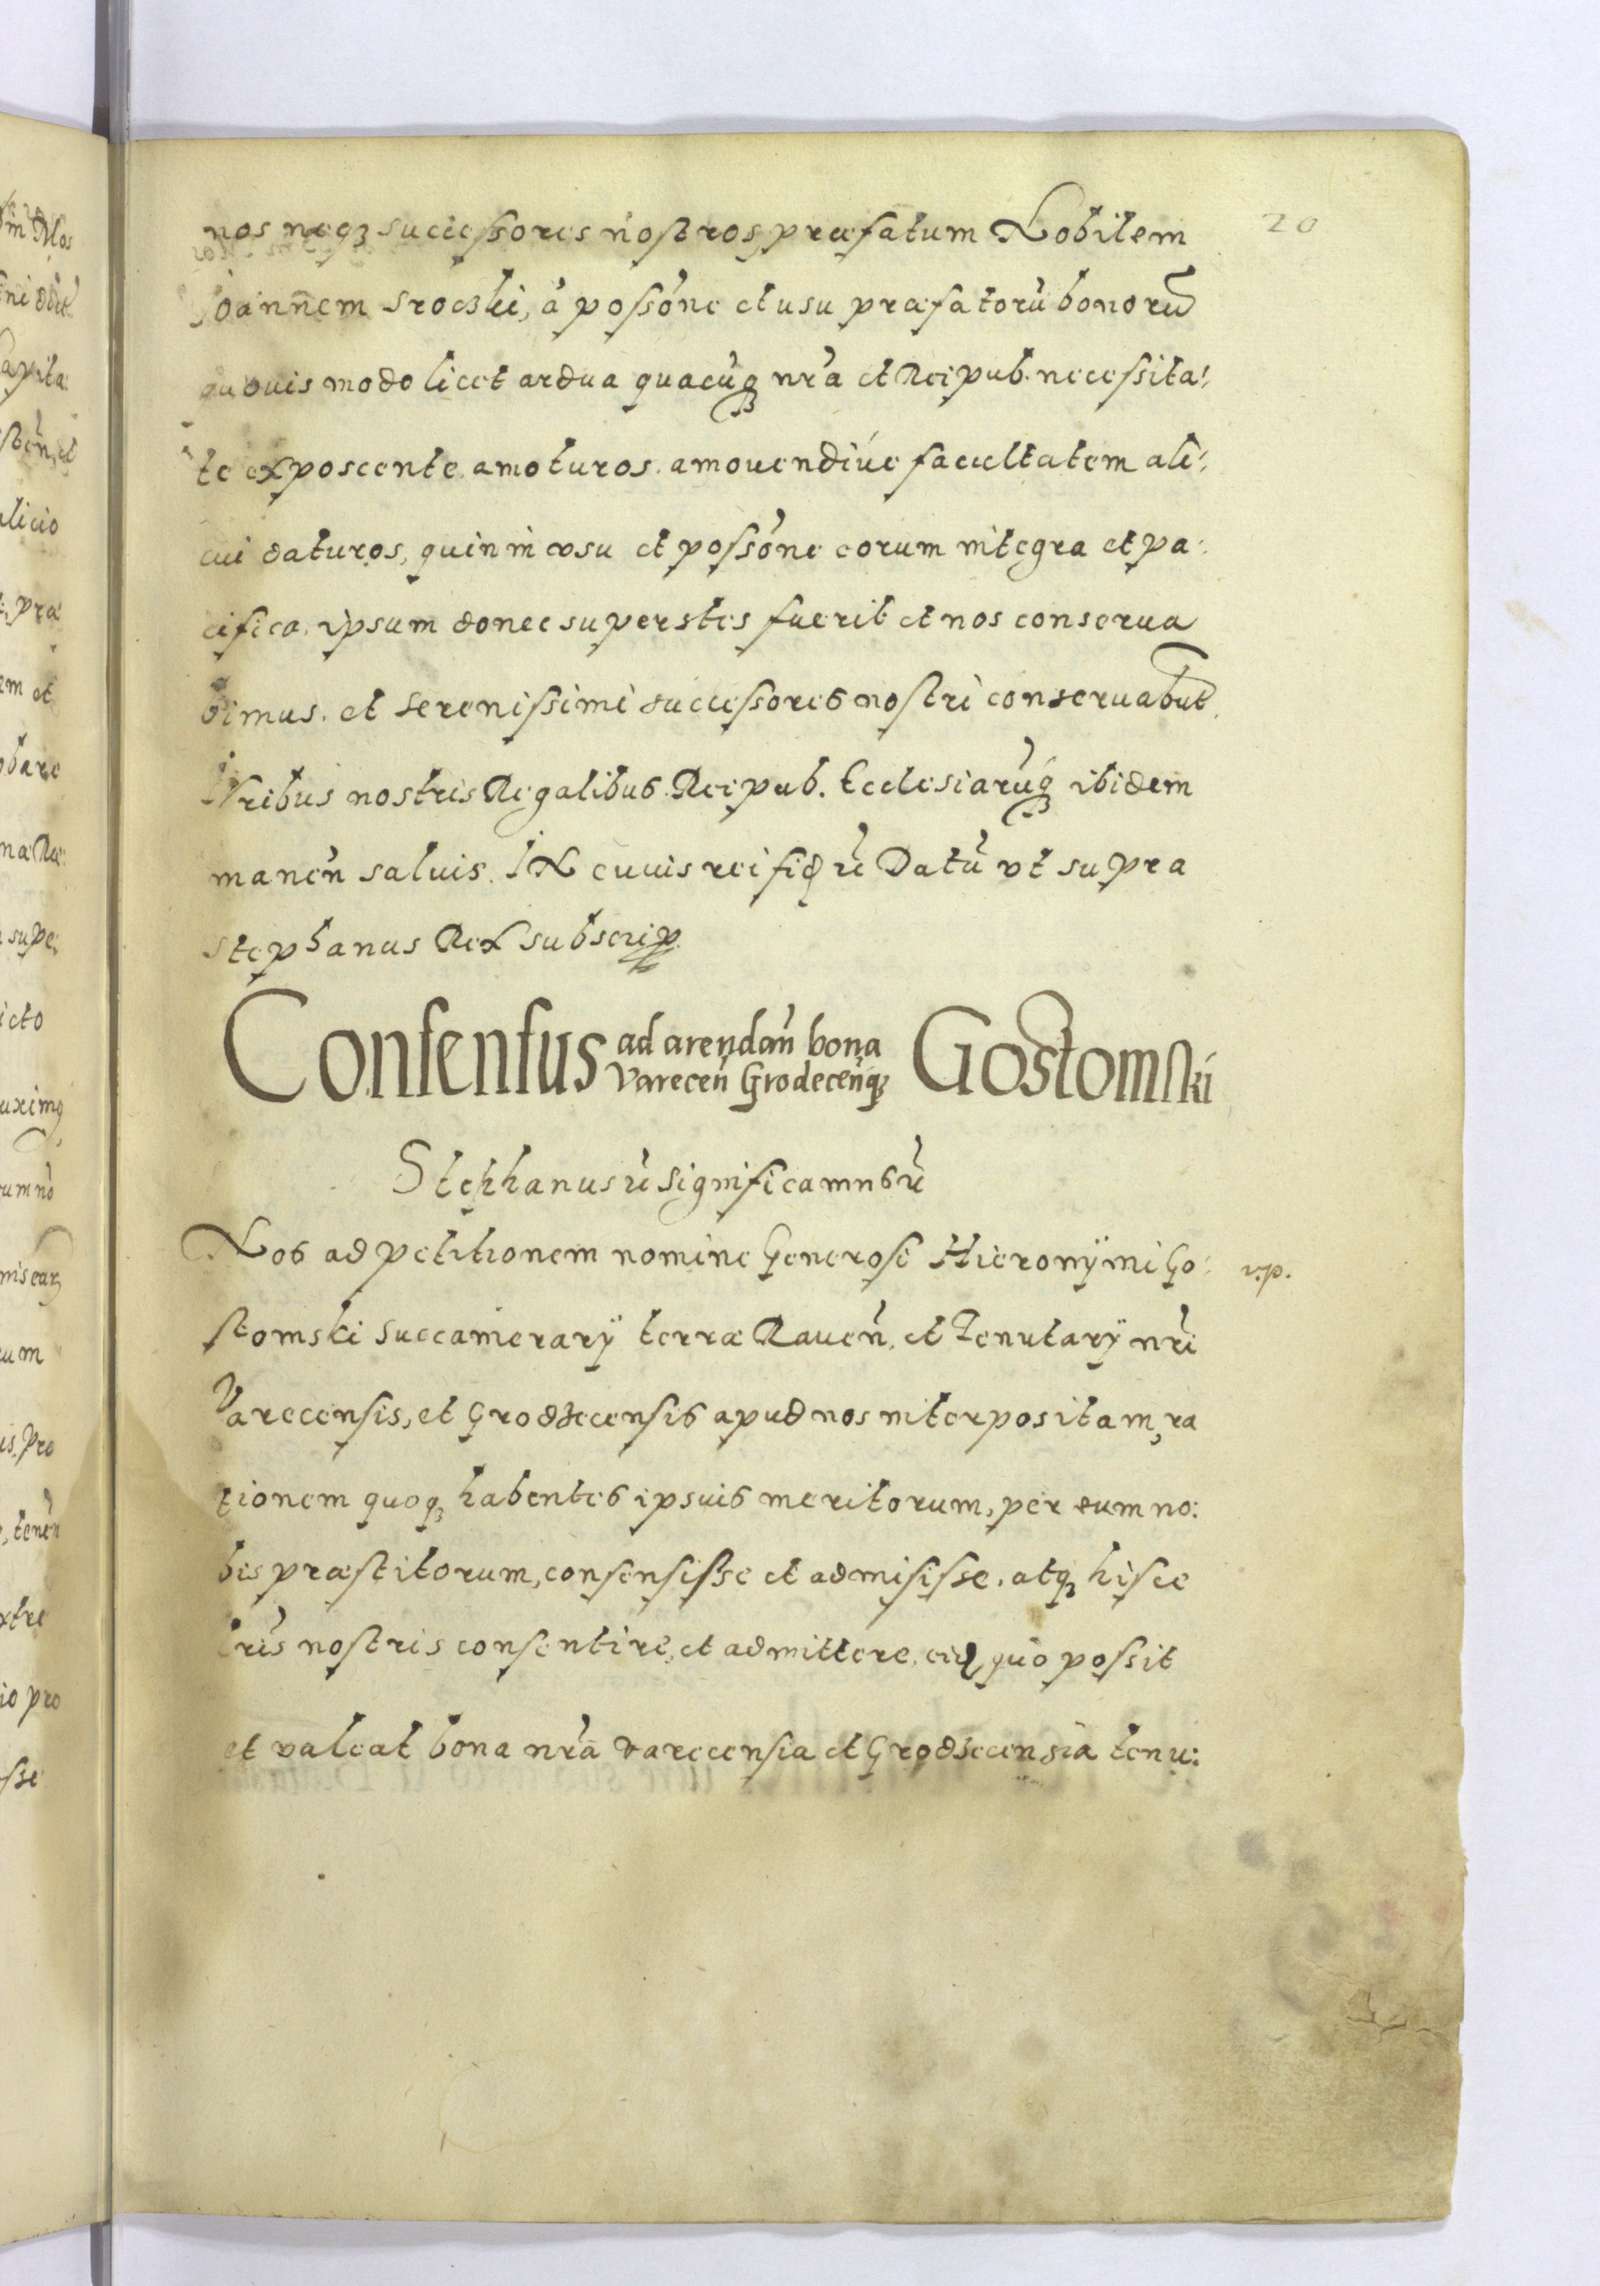 20
nos neqꝫ successores nostros, præfatum Nobilem
Joannem Sroczki, à possone et usu præfatorū bonorū
quovis modo licet ardua quacūqꝫ nrā et Reipub. necessita:
te exposcente amoturos. amovendive facultatem ali:
cui daturos, quin in vsu et possone eorum integra et pa:
cifica, ipsum donec superstes fuerit et nos conserua
bimus. et serenissimi successores nostri conseruabūt.
Iuribus nostris Regalibus Reipub. Ecclesiarūqꝫ ibidem
manen̄ saluis. IN cuius rei fidē Datū vt supra
Stephanus Rex subscrip.
Consensus ad arendan̄ bona Varecen̄ Grodecen̄qꝫ Gostomski
Stephanus significamus
Nos ad petitionem nomine Generosi Hieronÿmi Go:
v.p.
stomski Succamerarÿ terræ Raven̄, et Tenutarÿ nrī
Varecensis, et Grodzecensis apud nos interpositam, ra
tionem quoqꝫ habentes ipsius meritorum, per eum no:
bis præstitorum, consensisse et admisisse. atqꝫ hisce
lrīs nostris consentire, et admittere, quò possit
et valeat bona nrā varecensia et Grodzecensia tenu: